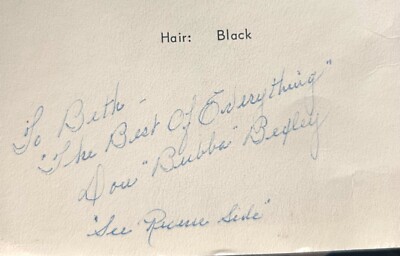 Hair: Black
To Beth -
"The Best Of Everything"
Don "Bubba" Bexley
"See Revrse Side"